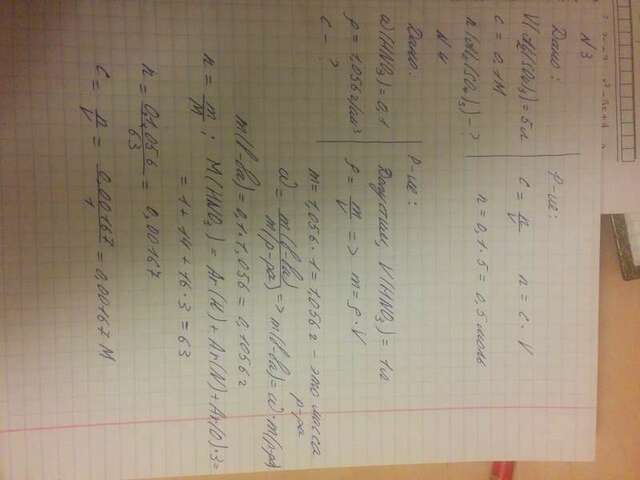 N 3
Дано:
V(Al₂(SO₄)₃) = 5л
c = 0,1М
n(Al₂(SO₄)₃) - ?
Р-ие:
c = n/V    n = c · V
n = 0,1 · 5 = 0,5 моль
N 4
Дано:
ω(HNO₃) = 0,1
ρ = 1,056 г/см³
c - ?
Р-ие:
Допустим, V(HNO₃) = 1л
ρ = m/V => m = ρ · V
m = 1,056 · 1 = 1,056 г - это масса
р-ра
ω = m(в-ва)/m(р-ра) => m(в-ва) = ω · m(р-ра)
m(в-ва) = 0,1 · 1,056 = 0,1056 г
n = m/M ; M(HNO₃) = Ar(H) + Ar(N) + Ar(O) · 3 =
= 1 + 14 + 16 · 3 = 63
n = 0,1056/63 = 0,00167
c = n/V = 0,00167/1 = 0,00167 М